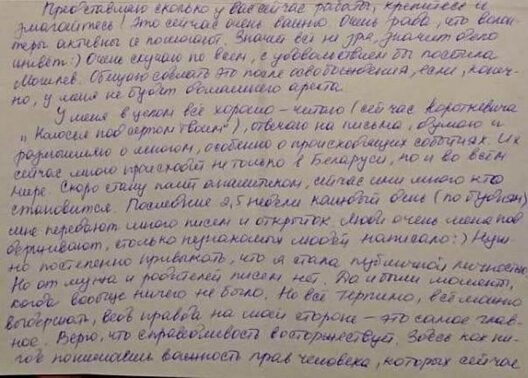 Представляю сколько у вас сейчас работы, крепитесь и
змагайтесь! Это сейчас очень важно. Очень рада, что волон-
теры активны и помогают. Значит всё не зря, значит дело
живёт :) Очень скучаю по всем, с удовольствием бы посетила
Могилев. Обещаю сделать это после освобождения, если, конеч-
но, у меня не будет домашнего ареста.
У меня в целом всё хорошо - читаю (сейчас Короткевича
"Колосья под серпом твоим"), отвечаю на письма, думаю и
размышляю о многом, особенно о происходящих событиях. Их
сейчас много происходит не только в Беларуси, но и во всём
мире. Скоро стану полит. аналитиком, сейчас ими много кто
становится. Последние 2,5 недели каждый день (по будням)
мне передают много писем и открыток. Люди очень меня под
держивают, столько незнакомых людей написало :) Нуж-
но постепенно привыкать, что я стала публичной личностью.
Но от мужа и родителей писем нет. Да и были моменты,
когда вообще ничего не было. Но всё терпимо, всё можно
выдержать, ведь правда на моей стороне - это самое глав-
ное. Верю, что справедливость восторжествует. Здесь как ни-
где понимаешь важность прав человека, которых сейчас